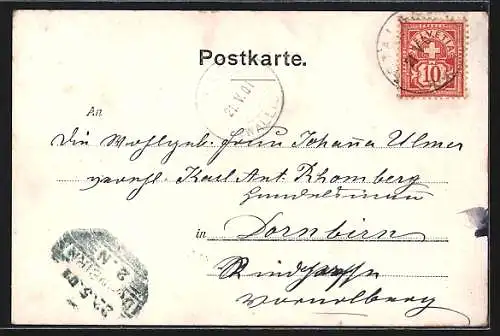 Postkarte.
HELVETIA
10
21.V.01
WALL
An
Die Wohlgeb. Frau Johanna Ulmer
Karl Ant. Rhomberg
in Dornbirn
Vorarlberg
22.5.01
2.N